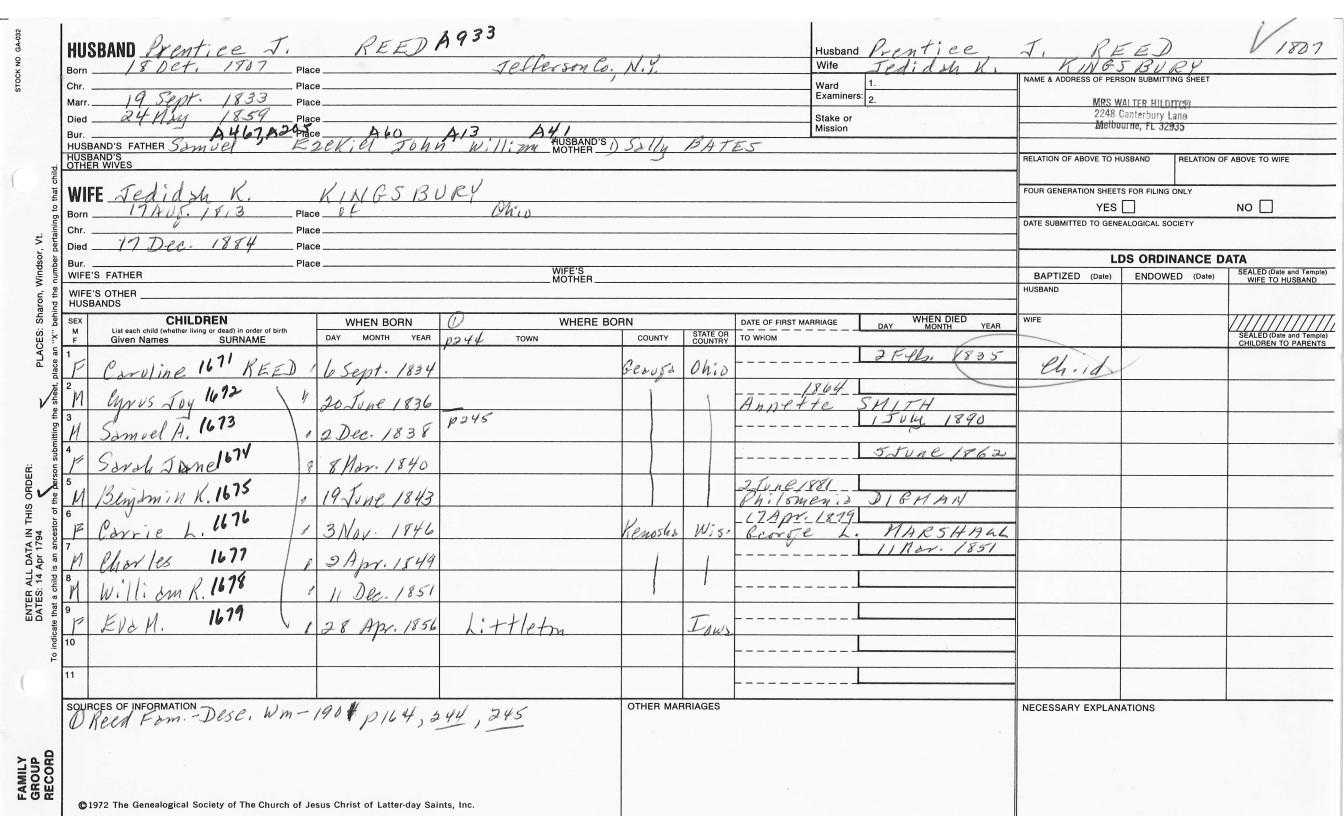 STOCK NO GA-032
HUSBAND Prentice J. REED A933
Born 18 Oct. 1907 Place Jefferson Co, N.Y.
Chr. Place
Marr. 19 Sept. 1833 Place
Died 24 May 1859 Place
Bur. A467, A205 Place A60 A13 A41
HUSBAND'S FATHER Samuel Ezekiel John William HUSBAND'S MOTHER ① Sally BATES
HUSBAND'S OTHER WIVES
WIFE Jedidah K. KINGSBURY
Born 17 Aug. 1813 Place of Ohio
Chr. Place
Died 17 Dec. 1884 Place
Bur. Place
WIFE'S FATHER WIFE'S MOTHER
WIFE'S OTHER HUSBANDS
Husband Prentice J. REED V 1807
Wife Jedidah K. KINGSBURY
Ward Examiners: 1.
2.
Stake or Mission
NAME & ADDRESS OF PERSON SUBMITTING SHEET
MRS WALTER HILDITCH
2248 Canterbury Lane
Melbourne, FL 32935
RELATION OF ABOVE TO HUSBAND RELATION OF ABOVE TO WIFE
FOUR GENERATION SHEETS FOR FILING ONLY
YES NO
DATE SUBMITTED TO GENEALOGICAL SOCIETY
LDS ORDINANCE DATA
BAPTIZED (Date) ENDOWED (Date) SEALED (Date and Temple) WIFE TO HUSBAND
HUSBAND
WIFE
SEALED (Date and Temple) CHILDREN TO PARENTS
SEX M F CHILDREN List each child (whether living or dead) in order of birth Given Names SURNAME WHEN BORN DAY MONTH YEAR ① p244 WHERE BORN TOWN COUNTY STATE OR COUNTRY DATE OF FIRST MARRIAGE TO WHOM WHEN DIED DAY MONTH YEAR
1 F Caroline 1671 REED 6 Sept. 1834 Geauga Ohio 2 Feb. 1835 Child
2 M Cyrus Joy 1672 " 20 June 1836 1864 Annette SMITH
3 M Samuel A. 1673 " 2 Dec. 1838 p245 1 July 1890
4 F Sarah Jane 1674 " 8 Mar. 1840 5 June 1862
5 M Benjamin K. 1675 " 19 June 1843 2 June 1881 Philomenia DIGMAN
6 F Carrie L. 1676 " 3 Nov. 1846 Kenosha Wis. 17 Apr. 1879 George L. MARSHALL
7 M Charles 1677 " 2 Apr. 1849 11 Mar. 1851
8 M William R. 1678 " 11 Dec. 1851
9 F Eva M. 1679 " 28 Apr. 1856 Littleton Iowa
10
11
SOURCES OF INFORMATION OTHER MARRIAGES NECESSARY EXPLANATIONS
① Reed Fam.-Desc. Wm-1901 p164, 244, 245
©1972 The Genealogical Society of The Church of Jesus Christ of Latter-day Saints, Inc.
FAMILY GROUP RECORD
ENTER ALL DATA IN THIS ORDER:
DATES: 14 Apr 1794 PLACES: Sharon, Windsor, Vt.
To indicate that a child is an ancestor of the person submitting the sheet, place an "X" behind the number pertaining to that child.